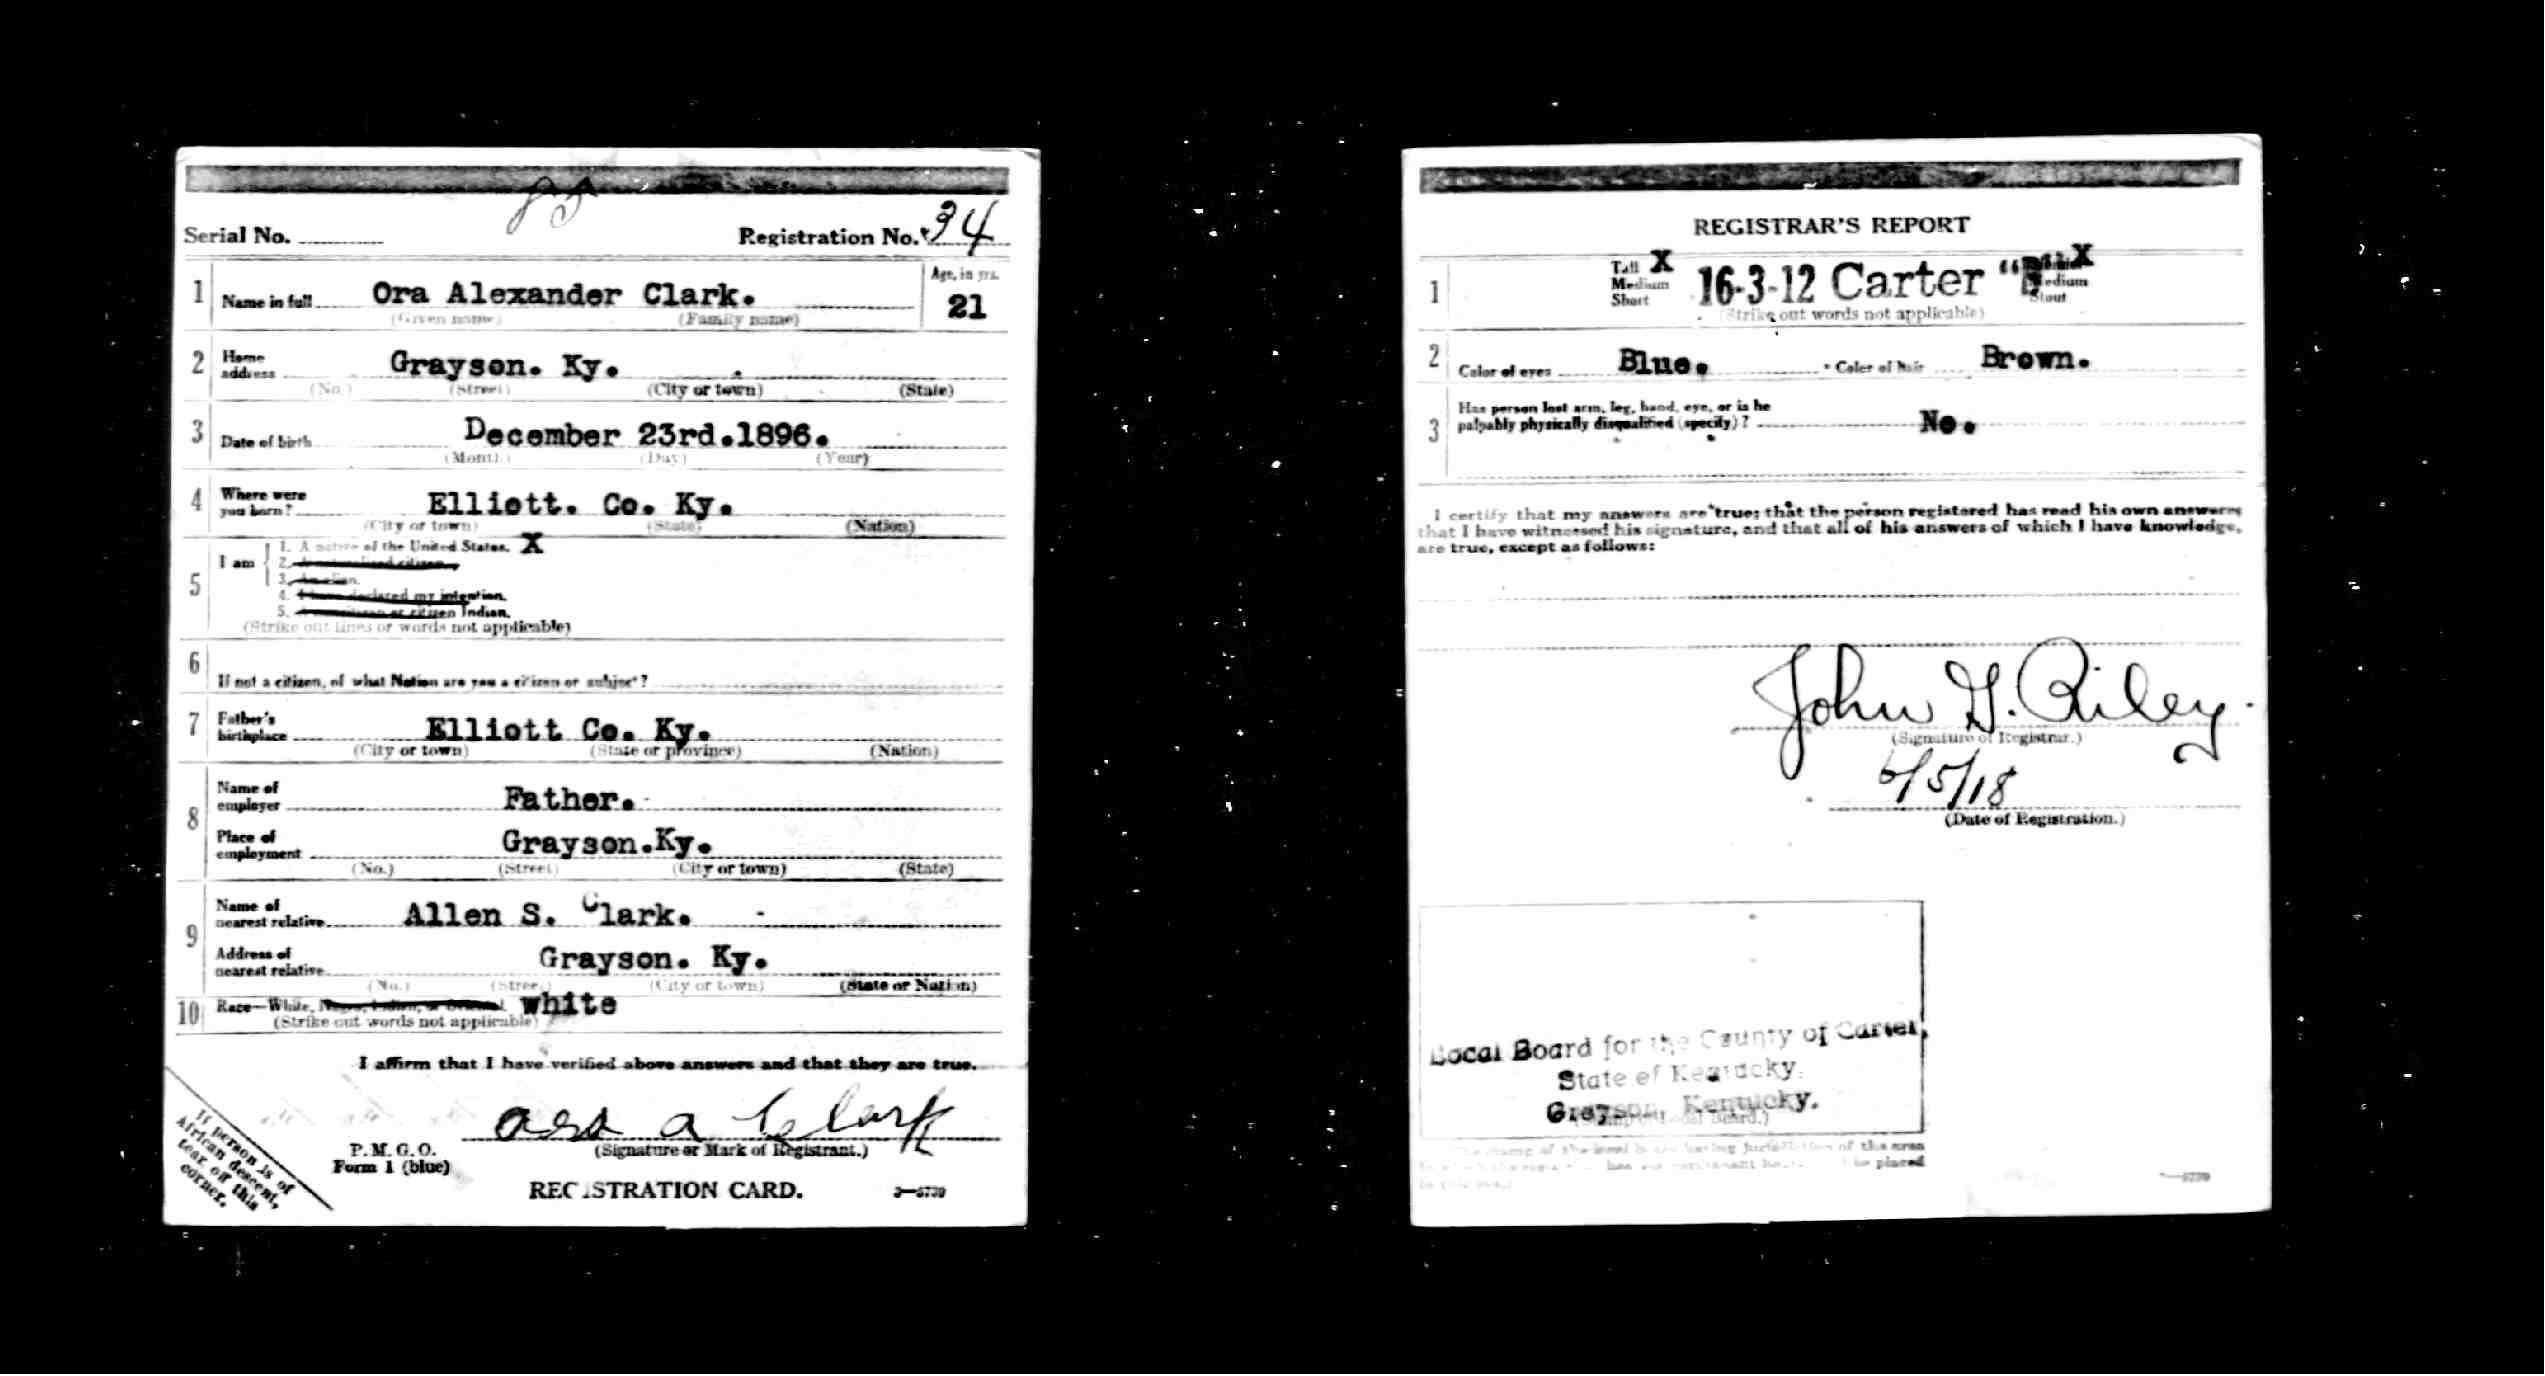 Serial No. Registration No. 34
1 Name in full Ora Alexander Clark. Age, in yrs. 21
(Given name) (Family name)
2 Home address Grayson. Ky.
(No.) (Street) (City or town) (State)
3 Date of birth December 23rd.1896.
(Month) (Day) (Year)
4 Where were you born? Elliott. Co. Ky.
(City or town) (State) (Nation)
5 I am
1. A native of the United States. X
2. A naturalized citizen.
3. An alien.
4. I have declared my intention.
5. A noncitizen or citizen Indian.
(Strike out lines or words not applicable)
6 If not a citizen, of what Nation are you a citizen or subject?
7 Father's birthplace Elliott Co. Ky.
(City or town) (State or province) (Nation)
8 Name of employer Father.
Place of employment Grayson.Ky.
(No.) (Street) (City or town) (State)
9 Name of nearest relative Allen S. Clark.
Address of nearest relative Grayson. Ky.
(No.) (Street) (City or town) (State or Nation)
10 Race—White, Negro, Indian, or Oriental. white
(Strike out words not applicable)
I affirm that I have verified above answers and that they are true.
Ora a Clark
(Signature or Mark of Registrant.)
P. M. G. O.
Form 1 (blue)
REGISTRATION CARD.
If person is of
African descent,
tear off this
corner.
REGISTRAR'S REPORT
1 Tall X
Medium
Short
16-3-12 Carter
X
Medium
Stout
(Strike out words not applicable)
2 Color of eyes Blue. Color of hair Brown.
3 Has person lost arm, leg, hand, eye, or is he
palpably physically disqualified (specify)? No.
I certify that my answers are true; that the person registered has read his own answers
that I have witnessed his signature, and that all of his answers of which I have knowledge,
are true, except as follows:
John G. Riley.
(Signature of Registrar.)
6/5/18
(Date of Registration.)
Local Board for the County of Carter,
State of Kentucky.
Grayson, Kentucky.